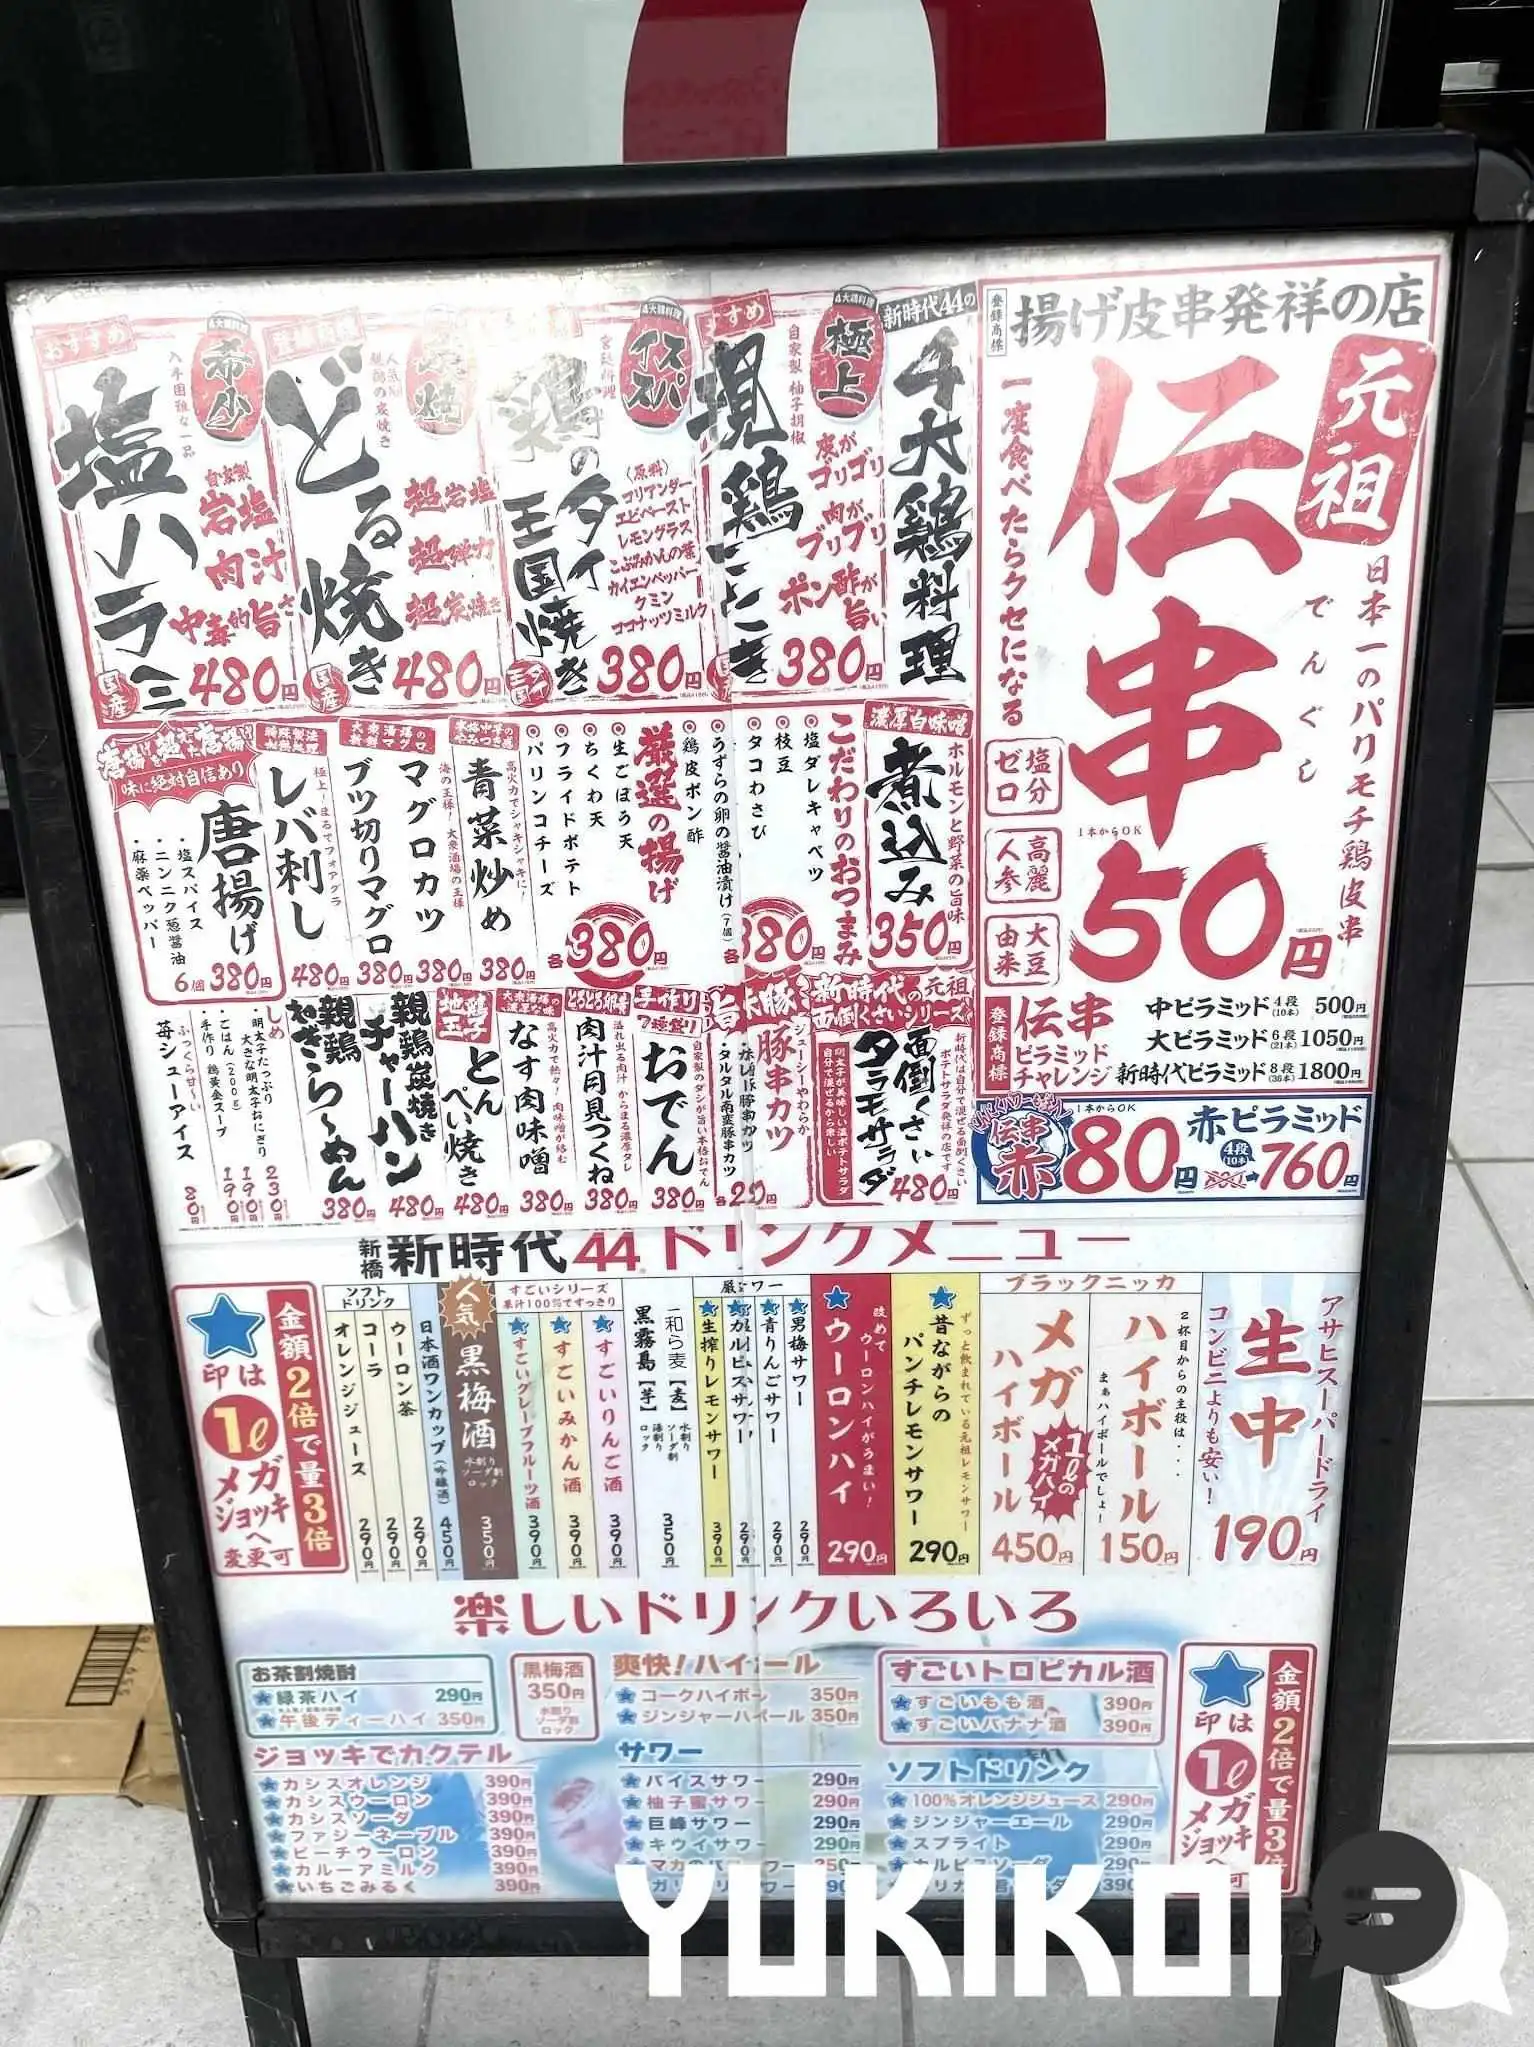 登録商標
揚げ皮串発祥の店
元祖
伝串
でんぐし
日本一のパリモチ鶏皮串
一度食べたらクセになる
塩分ゼロ
高麗人参
大豆由来
1本からOK
50円
登録商標
伝串
ピラミッド
チャレンジ
中ピラミッド 4段(10本) 500円
大ピラミッド 6段(21本) 1050円
新時代ピラミッド 8段(36本) 1800円
伝串
赤
1本からOK
80円
赤ピラミッド
4段(10本)
760円
新時代44の
4大鶏料理
4大鶏料理
極上
すめ
自家製 柚子胡椒
皮がゴリゴリ
肉がブリブリ
ポン酢が旨い
380円
4大鶏料理
スパイス
宮廷料理
鶏のタイ王国焼き
(原料)
コリアンダー
エビペースト
レモングラス
こぶみかんの葉
カイエンペッパー
クミン
ココナッツミルク
380円
どる焼き
親鶏の炭焼き
超岩塩
超弾力
超炭焼き
国産
480円
おすすめ
4大鶏料理
希少
入手困難な一品
塩ハラミ
自家製
岩塩
肉汁
中毒的旨さ
国産
480円
濃厚白味噌
煮込み
ホルモンと野菜の旨味
350円
こだわりのおつまみ
塩ダレキャベツ
枝豆
タコわさび
うずらの卵の醤油漬け(7個)
鶏皮ポン酢
各380円
厳選の揚げ
生ごぼう天
ちくわ天
フライドポテト
パリンコチーズ
各380円
青菜炒め
高火力でシャキシャキに!
380円
マグロカツ
海の王様!大衆酒場の王様
380円
ブツ切りマグロ
380円
レバ刺し
極上!まるでフォアグラ
480円
唐揚げを超えた唐揚げ
味に絶対自信あり
唐揚げ
・塩スパイス
・ニンニク葱醤油
・麻薬ペッパー
6個 380円
新時代の元祖
面倒くさいシリーズ
面倒くさい
タラモサラダ
新時代は自分で混ぜる面倒くさい
ポテトサラダ発祥の店です
明太子が美味しい温ポテトサラダ
自分で混ぜるから楽しい
480円
豚串カツ
ジューシーやわらか
・タルタル南蛮豚串カツ
手作り
7種盛り
おでん
自家製のダシが旨い本格おでん
380円
とろとろ卵黄
肉汁月見つくね
溢れ出る肉汁 からまる濃厚タレ
380円
なす肉味噌
高火力で熱々!肉味噌が絡む
380円
地鶏
玉子
とんぺい焼き
480円
親鶏炭焼き
チャーハン
480円
親鶏
ねぎらーめん
380円
しめ
・明太子たっぷり
大きな明太子おにぎり 230円
・ごはん(200g) 190円
・手作り 鶏黄金スープ 190円
ふっくら甘〜い
苺シューアイス 80円
新橋 新時代44 ドリンクメニュー
アサヒスーパードライ
生中
コンビニよりも安い!
190円
ブラックニッカ
2杯目からの主役は・・・
ハイボール
まぁハイボールでしょ!
150円
メガ
ハイボール
1ℓのメガハイ
450円
ずっと飲まれている元祖レモンサワー
昔ながらの
パンチレモンサワー
290円
改めて
ウーロンハイがうまい!
ウーロンハイ
290円
男梅サワー 290円
青りんごサワー 290円
カルピスサワー 290円
生搾りレモンサワー 390円
一和ら麦【麦】
黒霧島【芋】
水割り
ソーダ割
湯割り
ロック
350円
すごいシリーズ
果汁100%ですっきり
すごいりんご酒 390円
すごいみかん酒 390円
すごいグレープフルーツ酒 390円
人気
黒梅酒
水割り
ソーダ割
ロック
350円
日本酒ワンカップ(吟醸酒) 450円
ソフト
ドリンク
ウーロン茶 290円
コーラ 290円
オレンジジュース 290円
金額2倍で量3倍
印は
1ℓ
メガ
ジョッキ
へ
変更可
楽しいドリンクいろいろ
お茶割焼酎
緑茶ハイ 290円
午後ティーハイ 350円
黒梅酒
350円
水割り
ソーダ割
ロック
爽快!ハイボール
コークハイボール 350円
ジンジャーハイボール 350円
すごいトロピカル酒
すごいもも酒 390円
すごいバナナ酒 390円
ジョッキでカクテル
カシスオレンジ 390円
カシスウーロン 390円
カシスソーダ 390円
ファジーネーブル 390円
ピーチウーロン 390円
カルーアミルク 390円
いちごみるく 390円
サワー
バイスサワー 290円
柚子蜜サワー 290円
巨峰サワー 290円
キウイサワー 290円
ソフトドリンク
100%オレンジジュース 290円
ジンジャーエール 290円
スプライト 290円
カルピスソーダ 290円
金額2倍で量3倍
印は
1ℓ
メガ
ジョッキ
へ
YUKIKOI